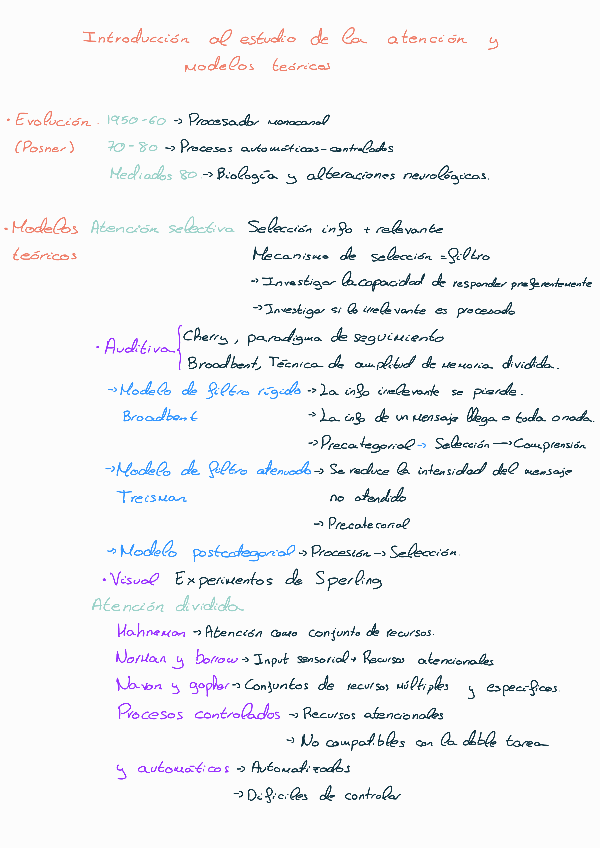 Introducción al estudio de la atención y
modelos teóricos
· Evolución. 1950-60 → Procesador monocanal
(Posner) 70-80 → Procesos automáticos-controlados
Mediados 80 → Biología y alteraciones neurológicas.
· Modelos Atención selectiva Selección info + relevante
teóricos Mecanismo de selección = filtro
→ Investigar la capacidad de responder preferentemente
→ Investigar si lo irrelevante es procesado
· Auditiva { Cherry, paradigma de seguimiento
Broadbent, Técnica de amplitud de memoria dividida.
→ Modelo de filtro rígido → La info irrelevante se pierde.
Broadbent → La info de un mensaje llega o toda o nada.
→ Precategorial → Selección → Comprensión
→ Modelo de filtro atenuado → Se reduce la intensidad del mensaje
Treisman no atendido
→ Precatecorial
→ Modelo postcategorial → Procesión → Selección.
· Visual Experimentos de Sperling
Atención dividida
Hahneman → Atención como conjunto de recursos.
Norman y borrow → Input sensorial + Recursos atencionales
Navon y gopher → Conjuntos de recursos múltiples y específicos.
Procesos controlados → Recursos atencionales
→ No compatibles con la doble tarea
y automáticos → Automatizados
→ Difíciles de controlar